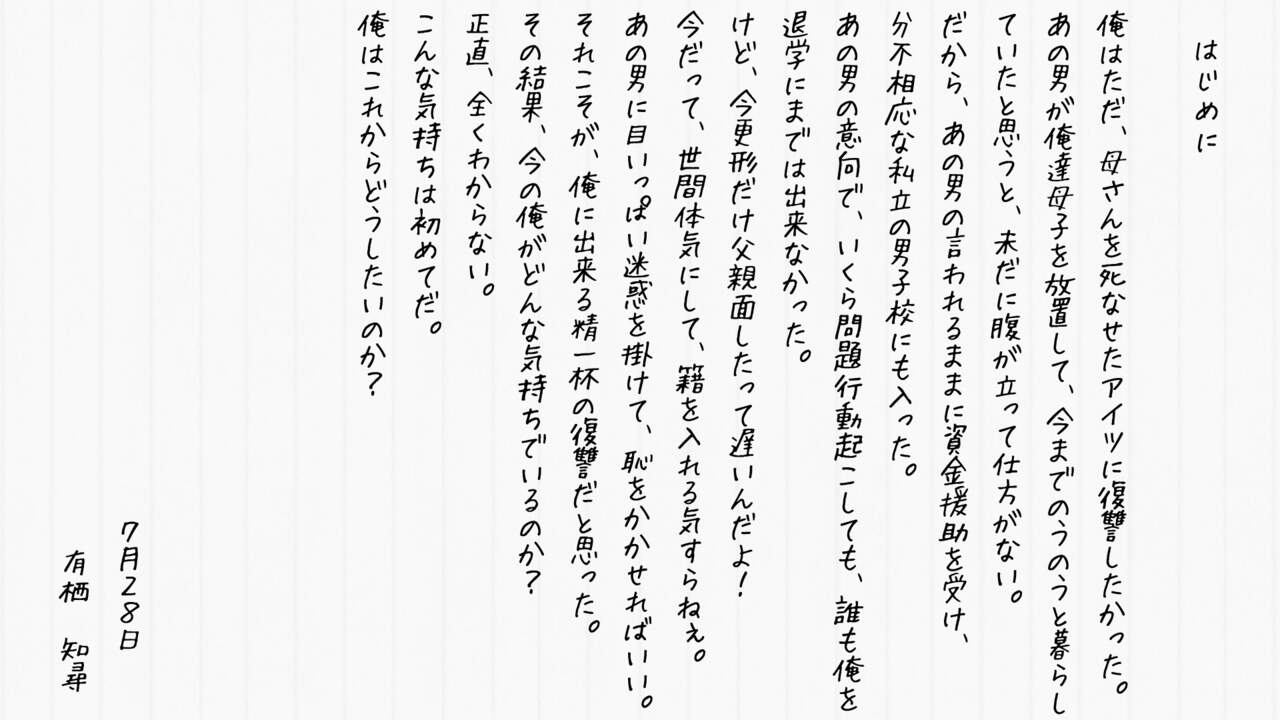 はじめに
俺はただ、母さんを死なせたアイツに復讐したかった。
あの男が俺達母子を放置して、今までのうのうと暮らし
ていたと思うと、未だに腹が立って仕方がない。
だから、あの男の言われるままに資金援助を受け、
分不相応な私立の男子校にも入った。
あの男の意向で、いくら問題行動起こしても、誰も俺を
退学にまでは出来なかった。
けど、今更形だけ父親面したって遅いんだよ！
今だって、世間体気にして、籍を入れる気すらねぇ。
あの男に目いっぱい迷惑を掛けて、恥をかかせればいい。
それこそが、俺に出来る精一杯の復讐だと思った。
その結果、今の俺がどんな気持ちでいるのか？
正直、全くわからない。
こんな気持ちは初めてだ。
俺はこれからどうしたいのか？
7月28日
有栖　知尋